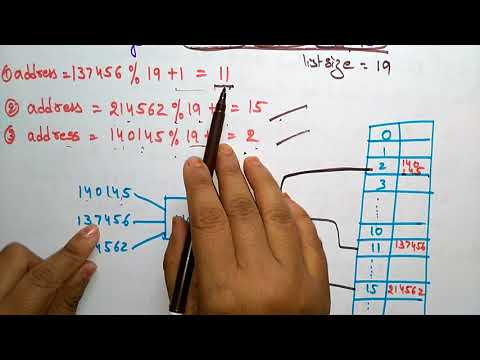 listsize = 19
① address = 137456 % 19 + 1 = 11
② address = 214562 % 19 + = 15
③ address = 140145 % 19 + = 2
0
1
2 140145
3
10
11 137456
15 214562
140145
137456
4562